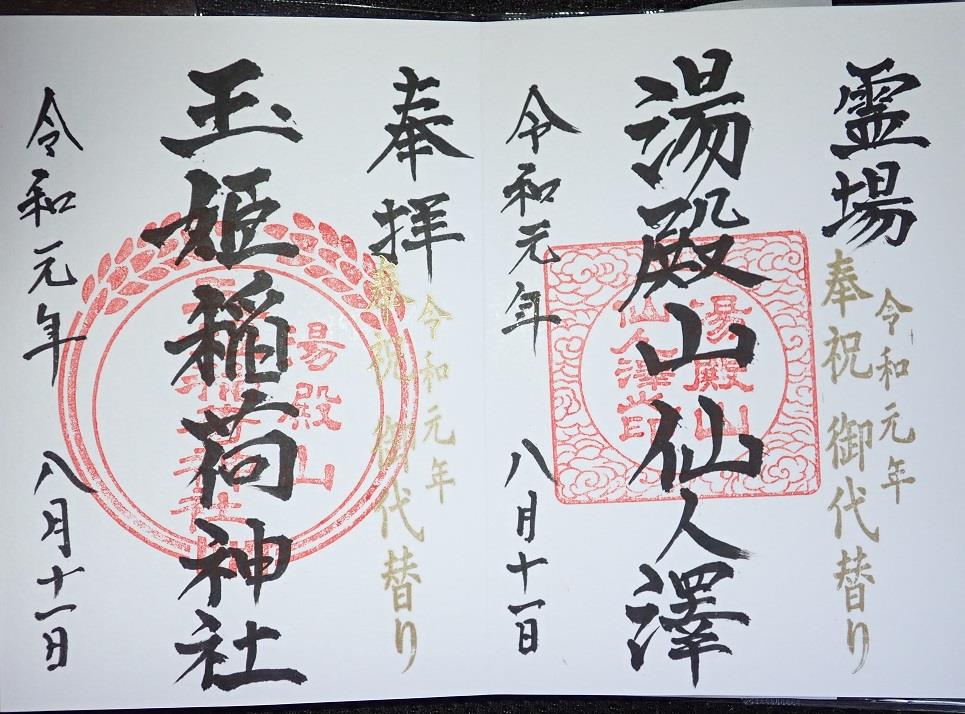 霊場
令和元年
奉祝 御代替り
湯殿山仙人澤
湯殿山
仙人澤印
令和元年 八月十一日
奉拝
令和元年
奉祝 御代替り
玉姫稲荷神社
湯殿山
令和元年 八月十一日